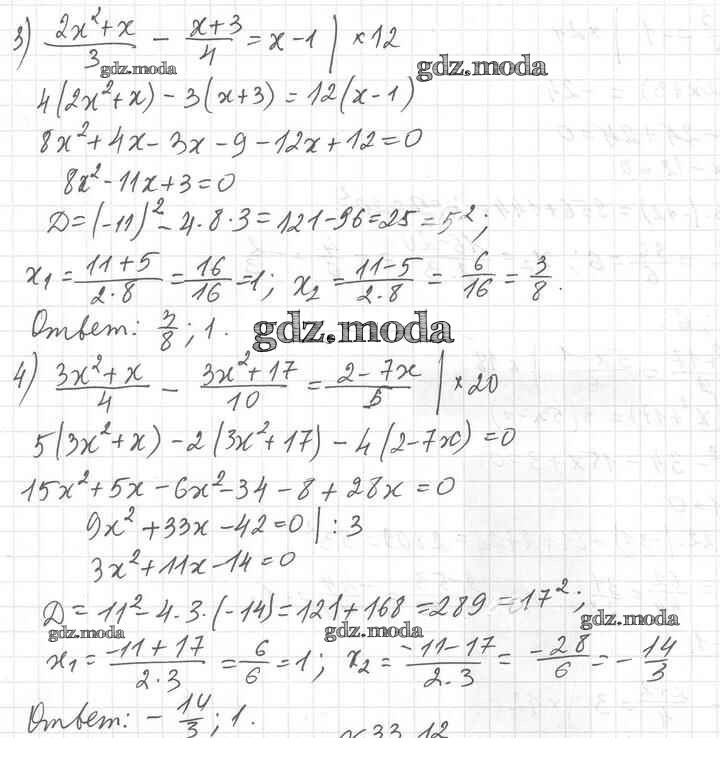 3) (2x²+x)/3 − (x+3)/4 = x−1 | ×12
gdz.moda
gdz.moda
4(2x²+x) − 3(x+3) = 12(x−1)
8x²+4x−3x−9−12x+12=0
8x²−11x+3=0
D=(−11)²−4·8·3=121−96=25=5²;
x₁=(11+5)/(2·8)=16/16=1; x₂=(11−5)/(2·8)=6/16=3/8.
Ответ: 3/8; 1.
gdz.moda
4) (3x²+x)/4 − (3x²+17)/10 = (2−7x)/5 | ×20
5(3x²+x)−2(3x²+17)−4(2−7x)=0
15x²+5x−6x²−34−8+28x=0
9x²+33x−42=0 | :3
3x²+11x−14=0
D=11²−4·3·(−14)=121+168=289=17²;
gdz.moda
gdz.moda
gdz.moda
x₁=(−11+17)/(2·3)=6/6=1; x₂=(−11−17)/(2·3)=−28/6=−14/3
Ответ: −14/3; 1.